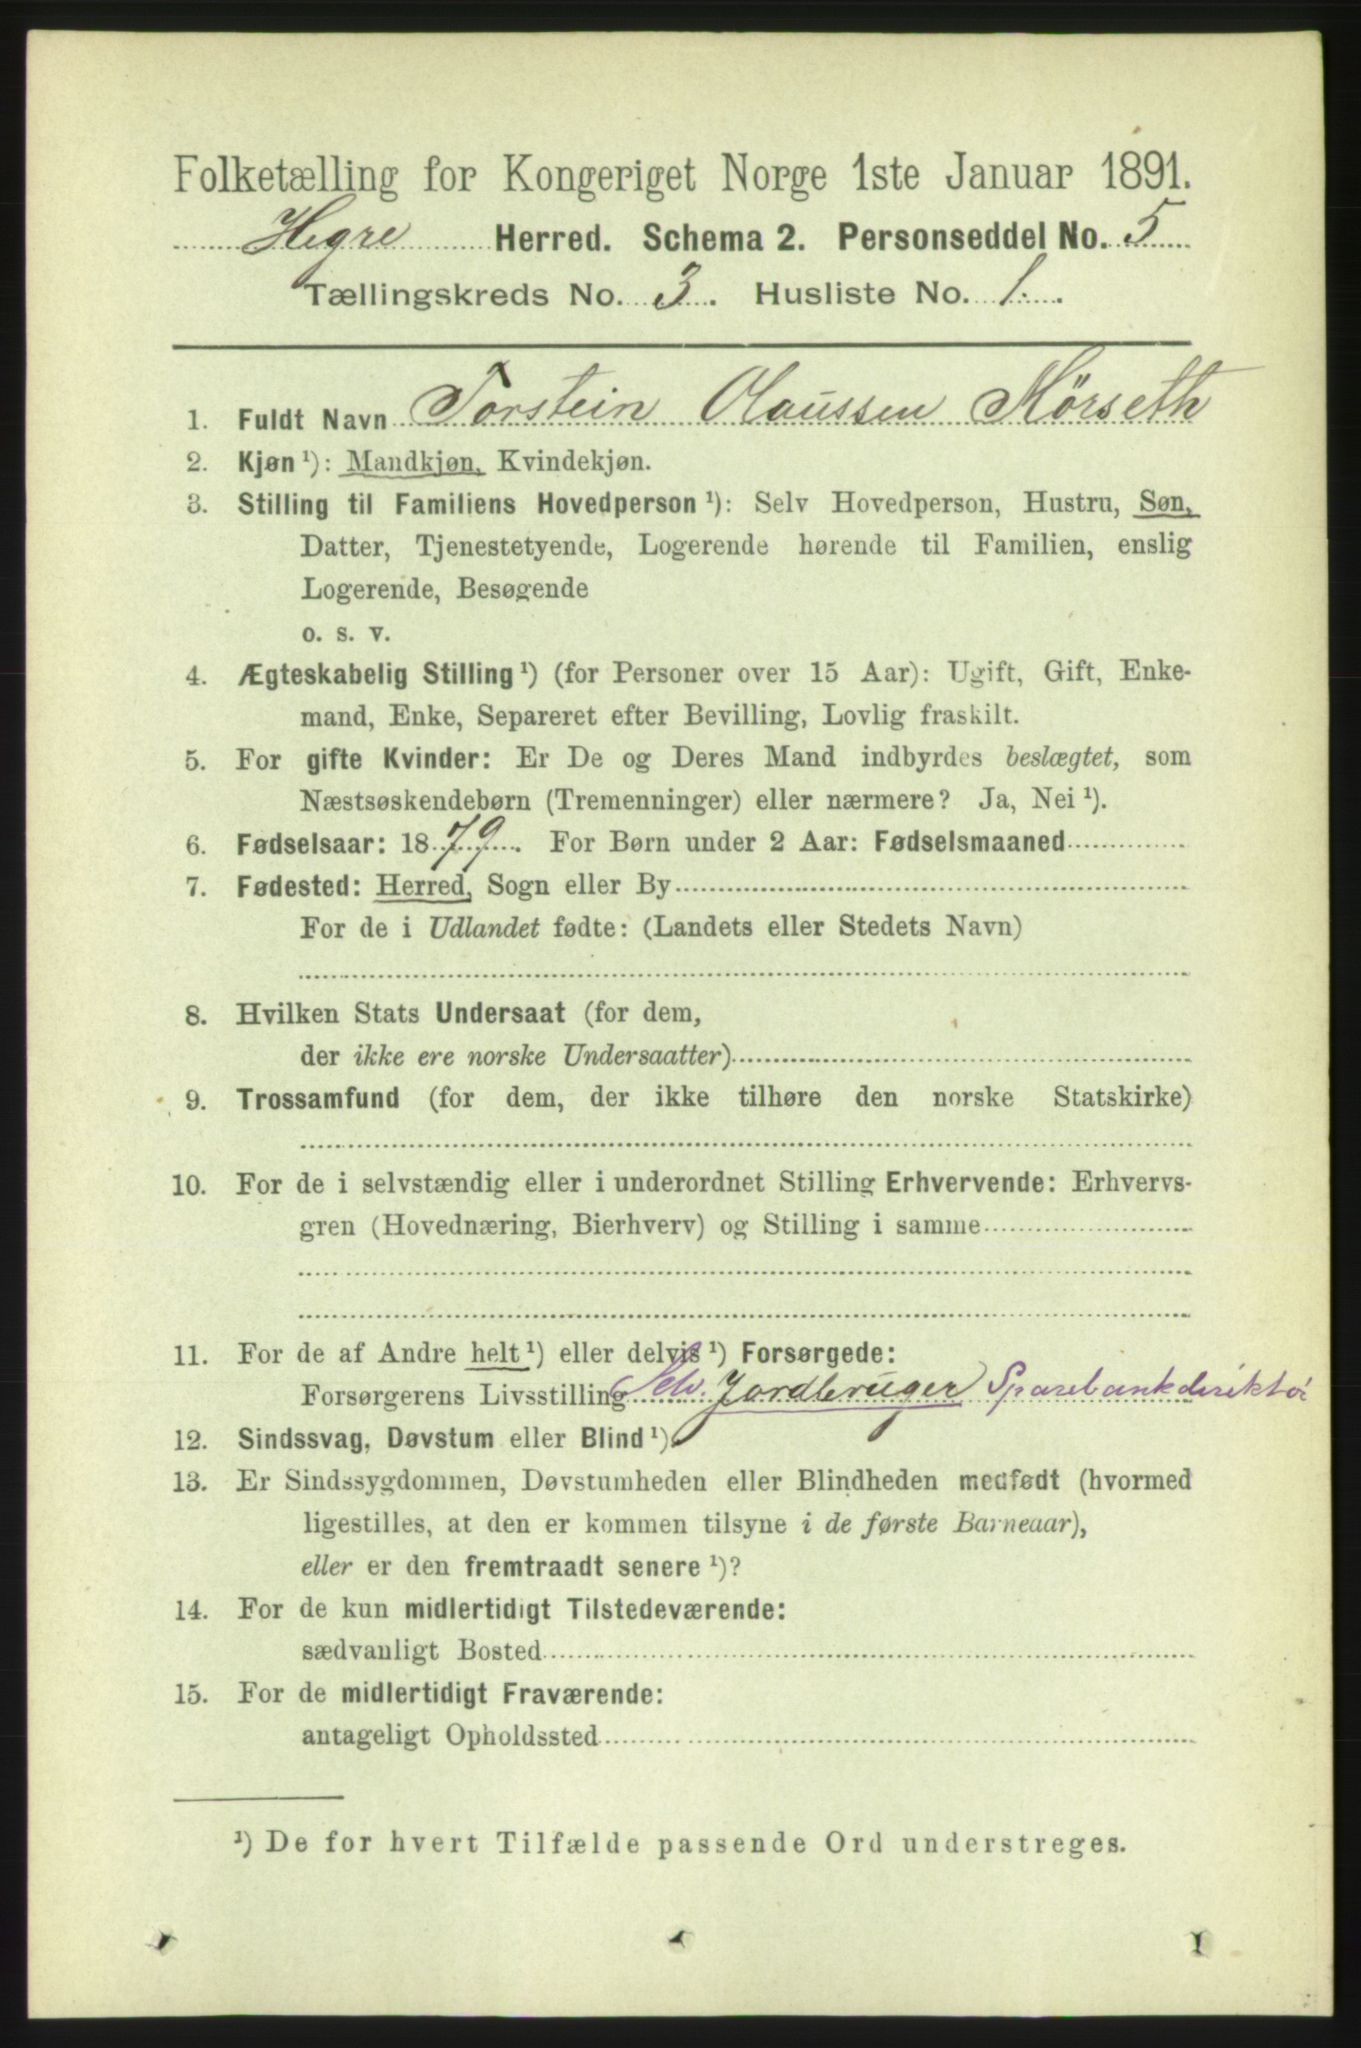 Folketælling for Kongeriget Norge 1ste Januar 1891.
Hegre Herred. Schema 2. Personseddel No. 5
Tællingskreds No. 3. Husliste No. 1.
1. Fuldt Navn Torstein Olaussen Mörseth
2. Kjøn ¹): Mandkjøn, Kvindekjøn.
3. Stilling til Familiens Hovedperson ¹): Selv Hovedperson, Hustru, Søn,
Datter, Tjenestetyende, Logerende hørende til Familien, enslig
Logerende, Besøgende
o. s. v.
4. Ægteskabelig Stilling ¹) (for Personer over 15 Aar): Ugift, Gift, Enke-
mand, Enke, Separeret efter Bevilling, Lovlig fraskilt.
5. For gifte Kvinder: Er De og Deres Mand indbyrdes beslægtet, som
Næstsøskendebørn (Tremenninger) eller nærmere? Ja, Nei ¹).
6. Fødselsaar: 1879. For Børn under 2 Aar: Fødselsmaaned
7. Fødested: Herred, Sogn eller By
For de i Udlandet fødte: (Landets eller Stedets Navn)
8. Hvilken Stats Undersaat (for dem,
der ikke ere norske Undersaatter)
9. Trossamfund (for dem, der ikke tilhøre den norske Statskirke)
10. For de i selvstændig eller i underordnet Stilling Erhvervende: Erhvervs-
gren (Hovednæring, Bierhverv) og Stilling i samme
11. For de af Andre helt ¹) eller delvis ¹) Forsørgede:
Forsørgerens Livsstilling Selv. Jordbruger Sparebankdirektør
12. Sindssvag, Døvstum eller Blind ¹).
13. Er Sindssygdommen, Døvstumheden eller Blindheden medfødt (hvormed
ligestilles, at den er kommen tilsyne i de første Barneaar),
eller er den fremtraadt senere ¹)?
14. For de kun midlertidigt Tilstedeværende:
sædvanligt Bosted
15. For de midlertidigt Fraværende:
antageligt Opholdssted
¹) De for hvert Tilfælde passende Ord understreges.